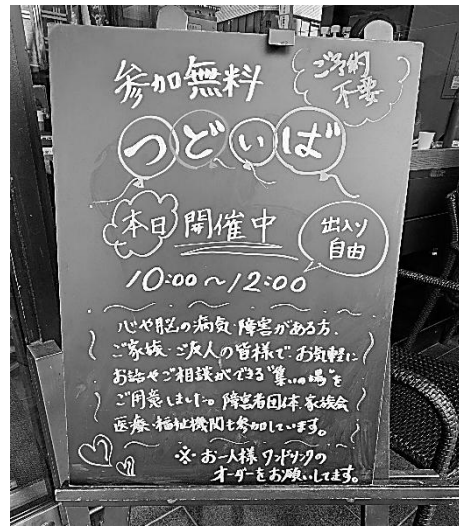 参加無料
ご予約
不要
つどいば
本日
開催中
出入り
自由
10:00～12:00
心や脳の病気・障害がある方、
ご家族・ご友人の皆様で、お気軽に
お話やご相談ができる"集いの場"を
ご用意しました。障害者団体、家族会
医療・福祉機関も参加しています。
※お一人様ワンドリンクの
オーダーをお願いしてます。